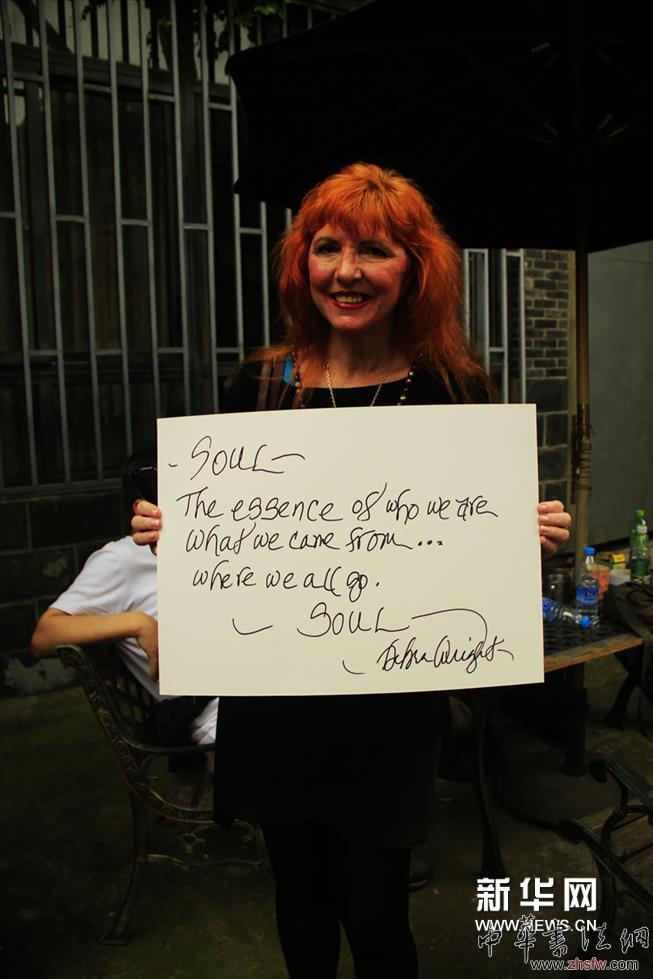 - SOUL -
The essence of who we are
what we came from...
where we all go.
SOUL
Debra Wright
新华网
WWW.NEWS.CN
中华书法网
www.zhsfw.com